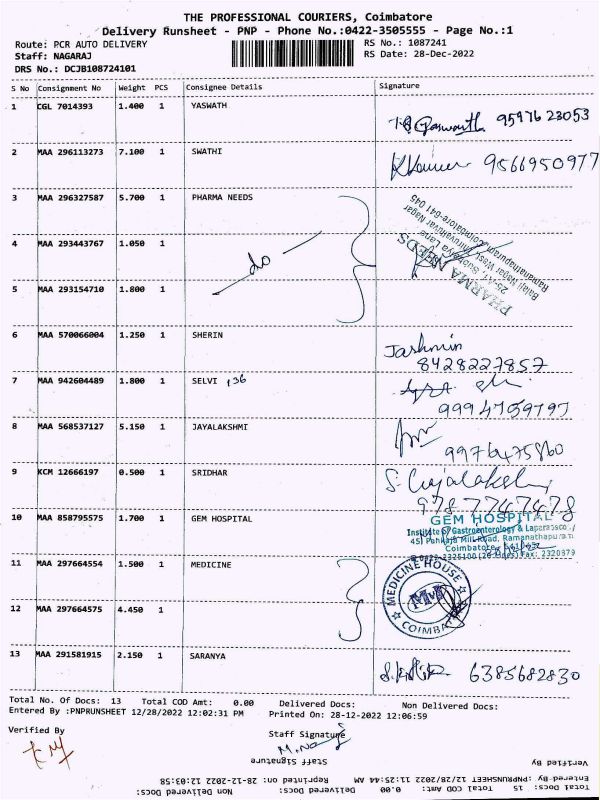 THE PROFESSIONAL COURIERS, Coimbatore
Delivery Runsheet - PNP - Phone No.:0422-3505555 - Page No.:1
Route: PCR AUTO DELIVERY
RS No.: 1087241
Staff: NAGARAJ
RS Date: 28-Dec-2022
DRS No.: DCJB108724101
S No Consignment No Weight PCS Consignee Details Signature
1 CGL 7014393 1.400 1 YASWATH 9597623053
2 MAA 296113273 7.100 1 SWATHI 9566950977
3 MAA 296327587 5.700 1 PHARMA NEEDS
4 MAA 293443767 1.050 1
do
PHARMA NEEDS
Balaji Nagar West, Thiruvalluvar Nagar
Ramanathapuram, Coimbatore-641 045
5 MAA 293154710 1.800 1
6 MAA 570066004 1.250 1 SHERIN Jashmin
8428227857
7 MAA 942604489 1.800 1 SELVI 136
9994759797
8 MAA 568537127 5.150 1 JAYALAKSHMI
9976475860
9 KCM 12666197 0.500 1 SRIDHAR
9787747478
10 MAA 858795575 1.700 1 GEM HOSPITAL
GEM HOSPITAL
Institute of Gastroenterology & Laparosco
45, Pankaja Mill Road, Ramanathapuram
Coimbatore
Fax: 2320879
11 MAA 297664554 1.500 1 MEDICINE
MEDICINE HOUSE
COIMBATORE
12 MAA 297664575 4.450 1
13 MAA 291581915 2.150 1 SARANYA 6385682830
Total No. Of Docs: 13 Total COD Amt: 0.00 Delivered Docs: Non Delivered Docs:
Entered By :PNPRUNSHEET 12/28/2022 12:02:31 PM Printed On: 28-12-2022 12:06:59
Verified By
Staff Signature
Staff Signature
Verified By
Entered By :PNPRUNSHEET 12/28/2022 11:25:44 AM Reprinted on: 28-12-2022 12:03:58
Total Docs: 15 Total COD Amt: 0.00 Delivered Docs: Non Delivered Docs: